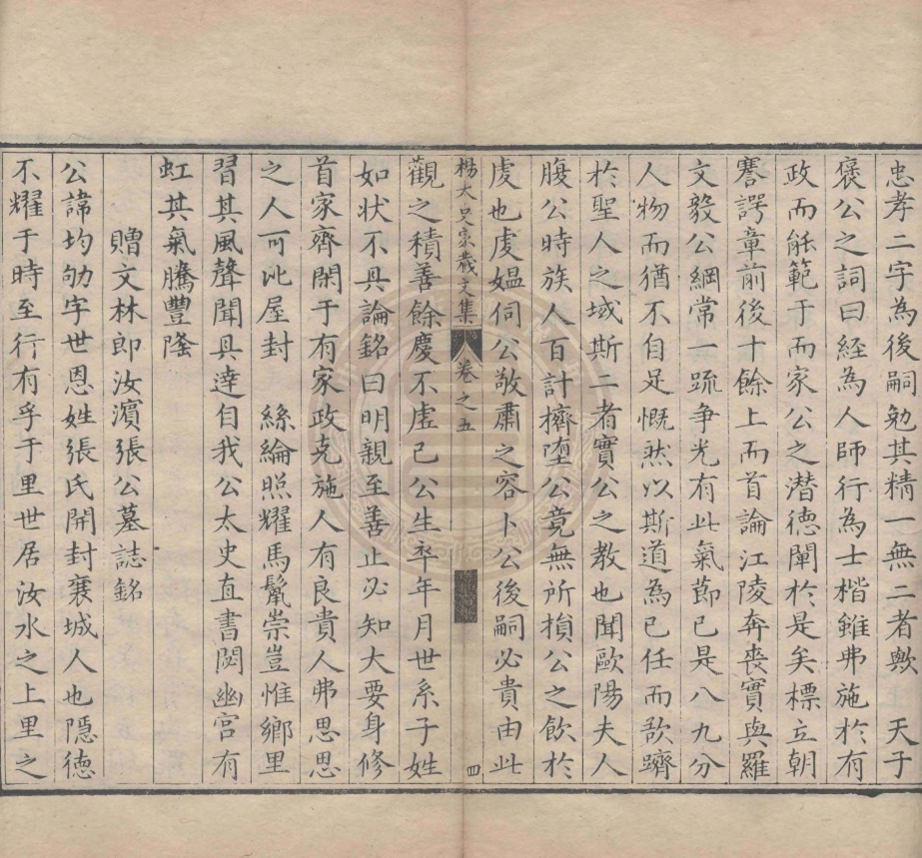 忠孝二字為後嗣勉其精一無二者歟　天子
襃公之詞曰經為人師行為士楷雖弗施於有
政而能範于而家公之潜德闡於是矣標立朝
謇諤章前後十餘上而首論江陵奔喪實與羅
文毅公綱常一䟽争光有此氣節已是八九分
人物而猶不自足慨然以斯道為己任而欲躋
於聖人之域斯二者實公之教也聞歐陽夫人
腹公時族人百計擠墮公竟無所損公之飲於
虔也虔媼伺公敬肅之容卜公後嗣必貴由此
楊太史家藏文集　卷之五　四
觀之積善餘慶不虗已公生卒年月世系子姓
如状不具論銘曰明親至善止必知大要身修
首家齊閑于有家政克施人有良貴人弗思思
之人可比屋封　絲綸照耀馬鬛崇豈惟鄉里
習其風聲聞具逹自我公太史直書閟幽宫有
虹其氣騰豐隆
贈文林郎汝濵張公墓誌銘
公諱均劬字世恩姓張氏開封襄城人也隱德
不耀于時至行有孚于里世居汝水之上里之